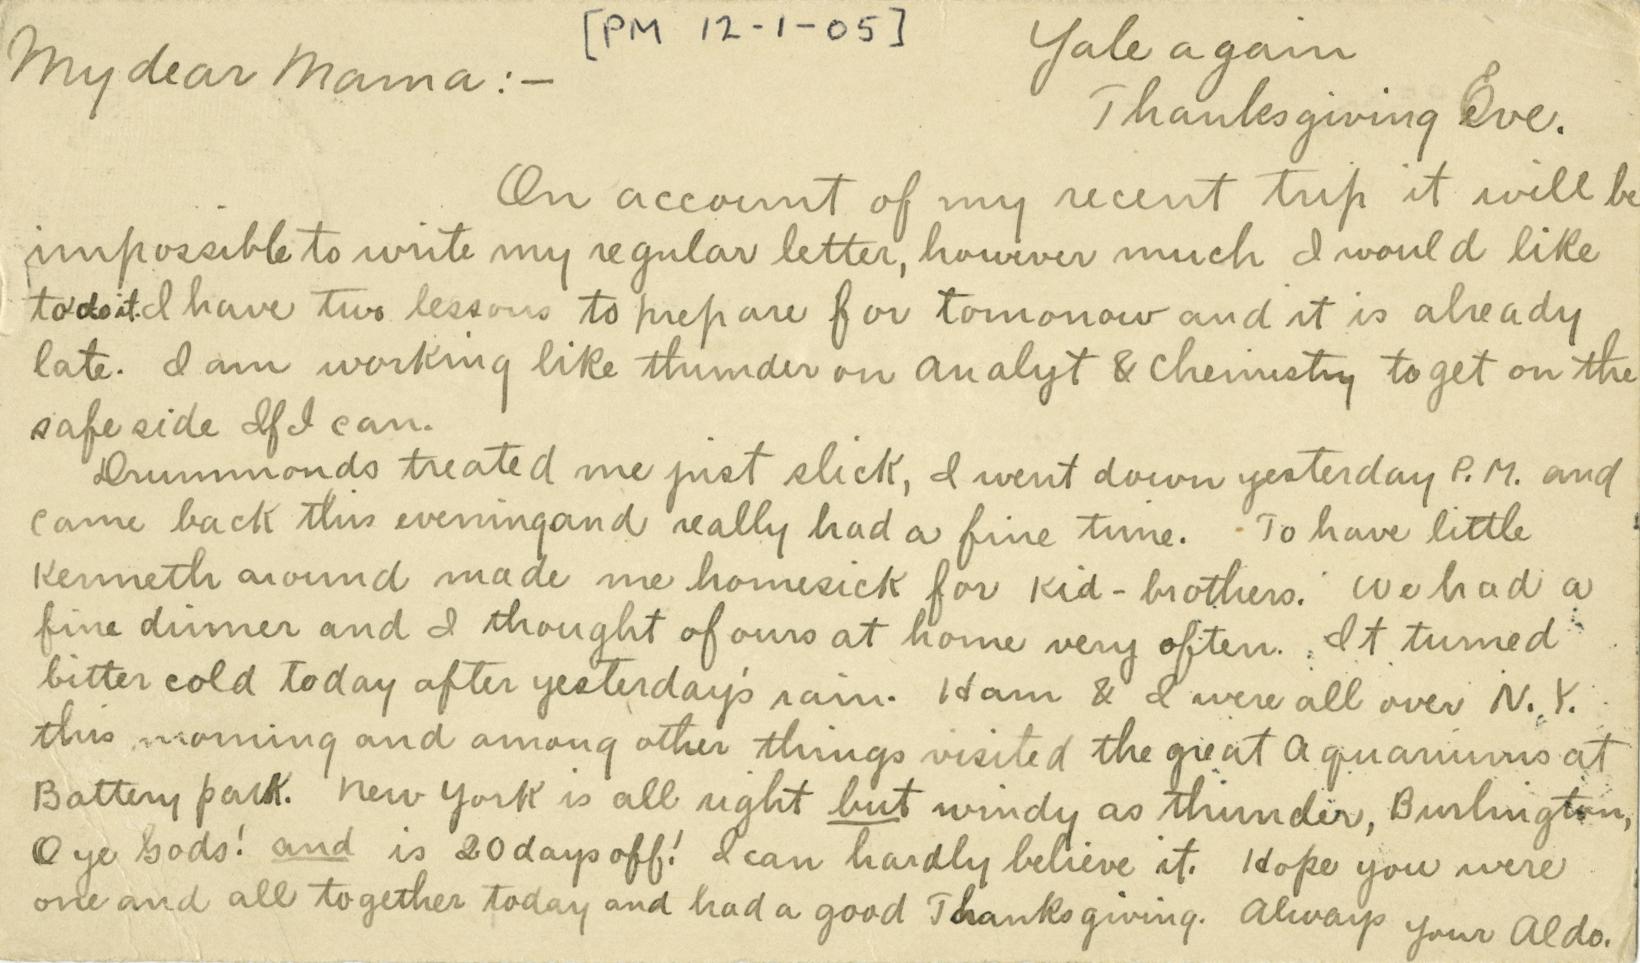 [PM 12-1-05]
Yale again
My dear Mama:—
Thanksgiving Eve.
On account of my recent trip it will be
impossible to write my regular letter, however much I would like
to do it. I have two lessons to prepare for tomorrow and it is already
late. I am working like thunder on Analyt & Chemistry to get on the
safe side If I can.
Drummonds treated me just slick, I went down yesterday P.M. and
came back this evening and really had a fine time. To have little
Kenneth around made me homesick for kid-brothers. We had a
fine dinner and I thought of ours at home very often. It turned
bitter cold today after yesterday's rain. Ham & I were all over N.Y.
this morning and among other things visited the great Aquariums at
Battery park. New York is all right but windy as thunder, Burlington,
O ye Gods! and is 20 days off! I can hardly believe it. Hope you were
one and all together today and had a good Thanksgiving. Always your Aldo.